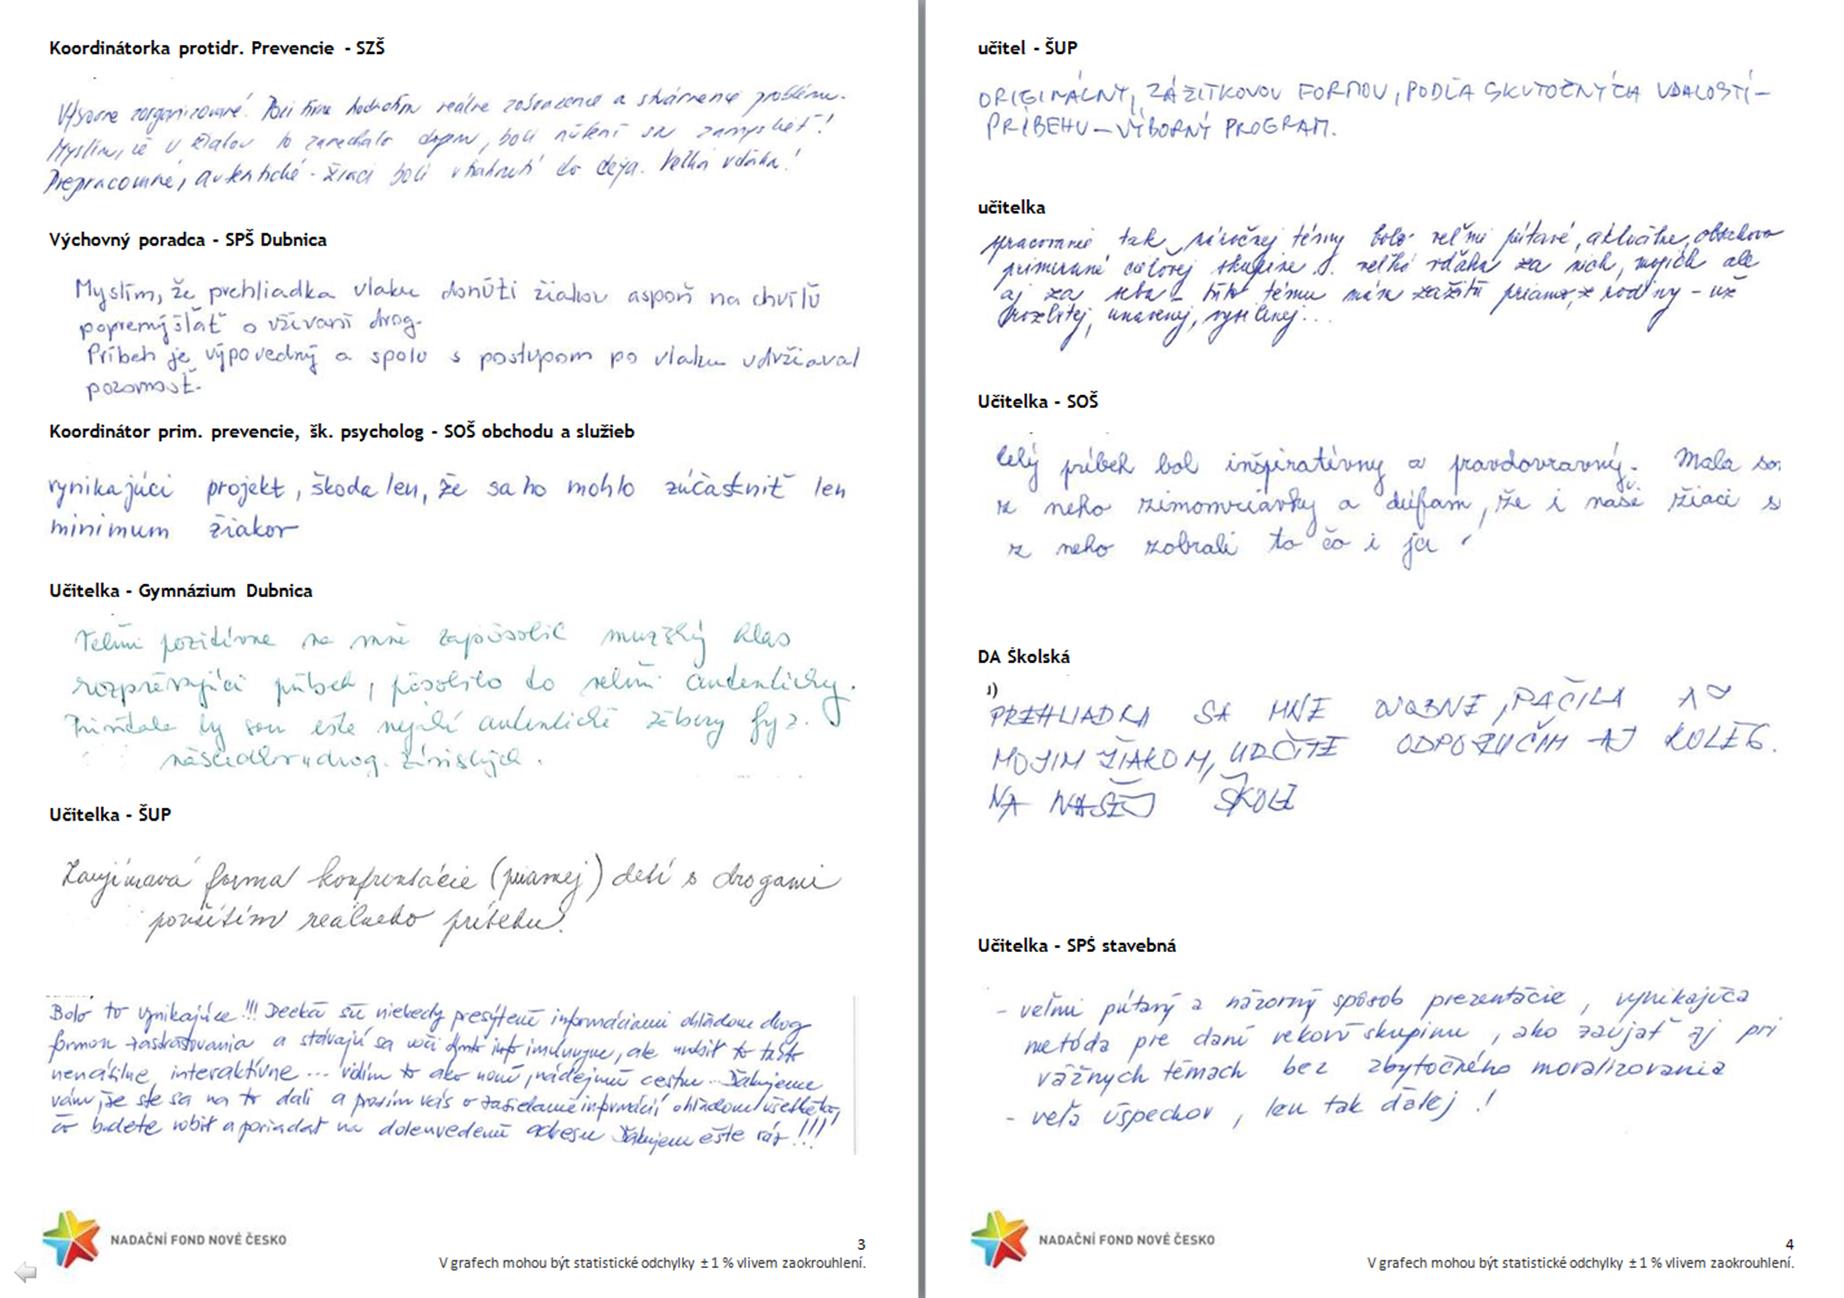 Koordinátorka protidr. Prevencie - SZŠ
Výborne zorganizované! Pozitívne hodnotím reálne zobrazenie a stvárnenie problému.
Myslím, že v žiakov to zanechalo dojem, boli nútení sa zamyslieť!
Prepracované, autentické - žiaci boli vtiahnutí do deja. Veľká vďaka!
Výchovný poradca - SPŠ Dubnica
Myslím, že prehliadka vlaku donúti žiakov aspoň na chvíľu
popremýšľať o užívaní drog.
Príbeh je výpovedný a spolu s postupom po vlaku udržiaval
pozornosť.
Koordinátor prim. prevencie, šk. psycholog - SOŠ obchodu a služieb
vynikajúci projekt, škoda len, že sa ho mohlo zúčastniť len
minimum žiakov
Učitelka - Gymnázium Dubnica
Veľmi pozitívne na mňa zapôsobil mužský hlas
rozprávajúci príbeh, pôsobilo to veľmi autenticky.
by som ešte nejaké autentické zábery fyz.
následkov drog. závislých.
Učitelka - ŠUP
Zaujímavá forma konfrontácie (priamej) detí s drogami
použitím reálneho príbehu.
Bolo to vynikajúce!!! Decká sú niekedy presýtené informáciami ohľadom drog
formou zastrašovania a stávajú sa voči imúnne, ale urobiť to takto
nenásilne, interaktívne... vidím to ako novú, nádejnú cestu. Ďakujeme
vám, že ste sa na to dali a prosím vás o zasielanie informácií ohľadom všetkého,
čo budete robiť a poriadať na doleuvedenú adresu. Ďakujem ešte raz!!!
NADAČNÍ FOND NOVÉ ČESKO
3
V grafech mohou být statistické odchylky ± 1 % vlivem zaokrouhlení.
učitel - ŠUP
ORIGINÁLNY, ZÁŽITKOVOU FORMOU, PODĽA SKUTOČNÝCH UDALOSTÍ -
PRÍBEHU - VÝBORNÝ PROGRAM.
učitelka
spracovanie tak náročnej témy bolo veľmi pútavé, aktuálne, obsahovo
primerané cieľovej skupine. veľká vďaka za nich, mojich ale
aj za seba - túto tému mám zažitú priamo z rodiny - už
rozbitej, unavenej, vysilenej...
Učitelka - SOŠ
Celý príbeh bol inšpiratívny a pravdovravný. Mala som
z neho zimomriavky a dúfam, že i naši žiaci s
z neho zobrali to čo i ja
DA Školská
1)
PREHLIADKA SA MNE OSOBNE, PÁČILA AJ
MOJIM ŽIAKOM, URČITE ODPORUČÍM AJ KOLEG.
NA NAŠEJ ŠKOLE
Učitelka - SPŠ stavebná
- veľmi pútavý a názorný spôsob prezentácie, vynikajúca
metóda pre danú vekovú skupinu, ako zaujať aj pri
vážnych témach bez zbytočného moralizovania
- veľa úspechov, len tak ďalej!
NADAČNÍ FOND NOVÉ ČESKO
4
V grafech mohou být statistické odchylky ± 1 % vlivem zaokrouhlení.